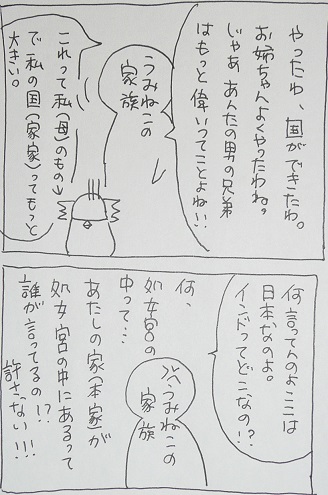 やったわ、国ができたわ。
お姉ちゃんよくやったわね。
じゃあ あんたの男の兄弟
はもっと偉いってことよね!!
うみねこの
家族
これって私(母)のもの→
で 私の国(家家)ってもっと
大きい。
何言ってんのよ ここは
日本なのよ。
インドってどこなの!?
うみねこの
家族
何、
処女宮の
中って…
あたしの家(本家)が
処女宮の中にあるって
誰が言ってるの!?
許さない!!!